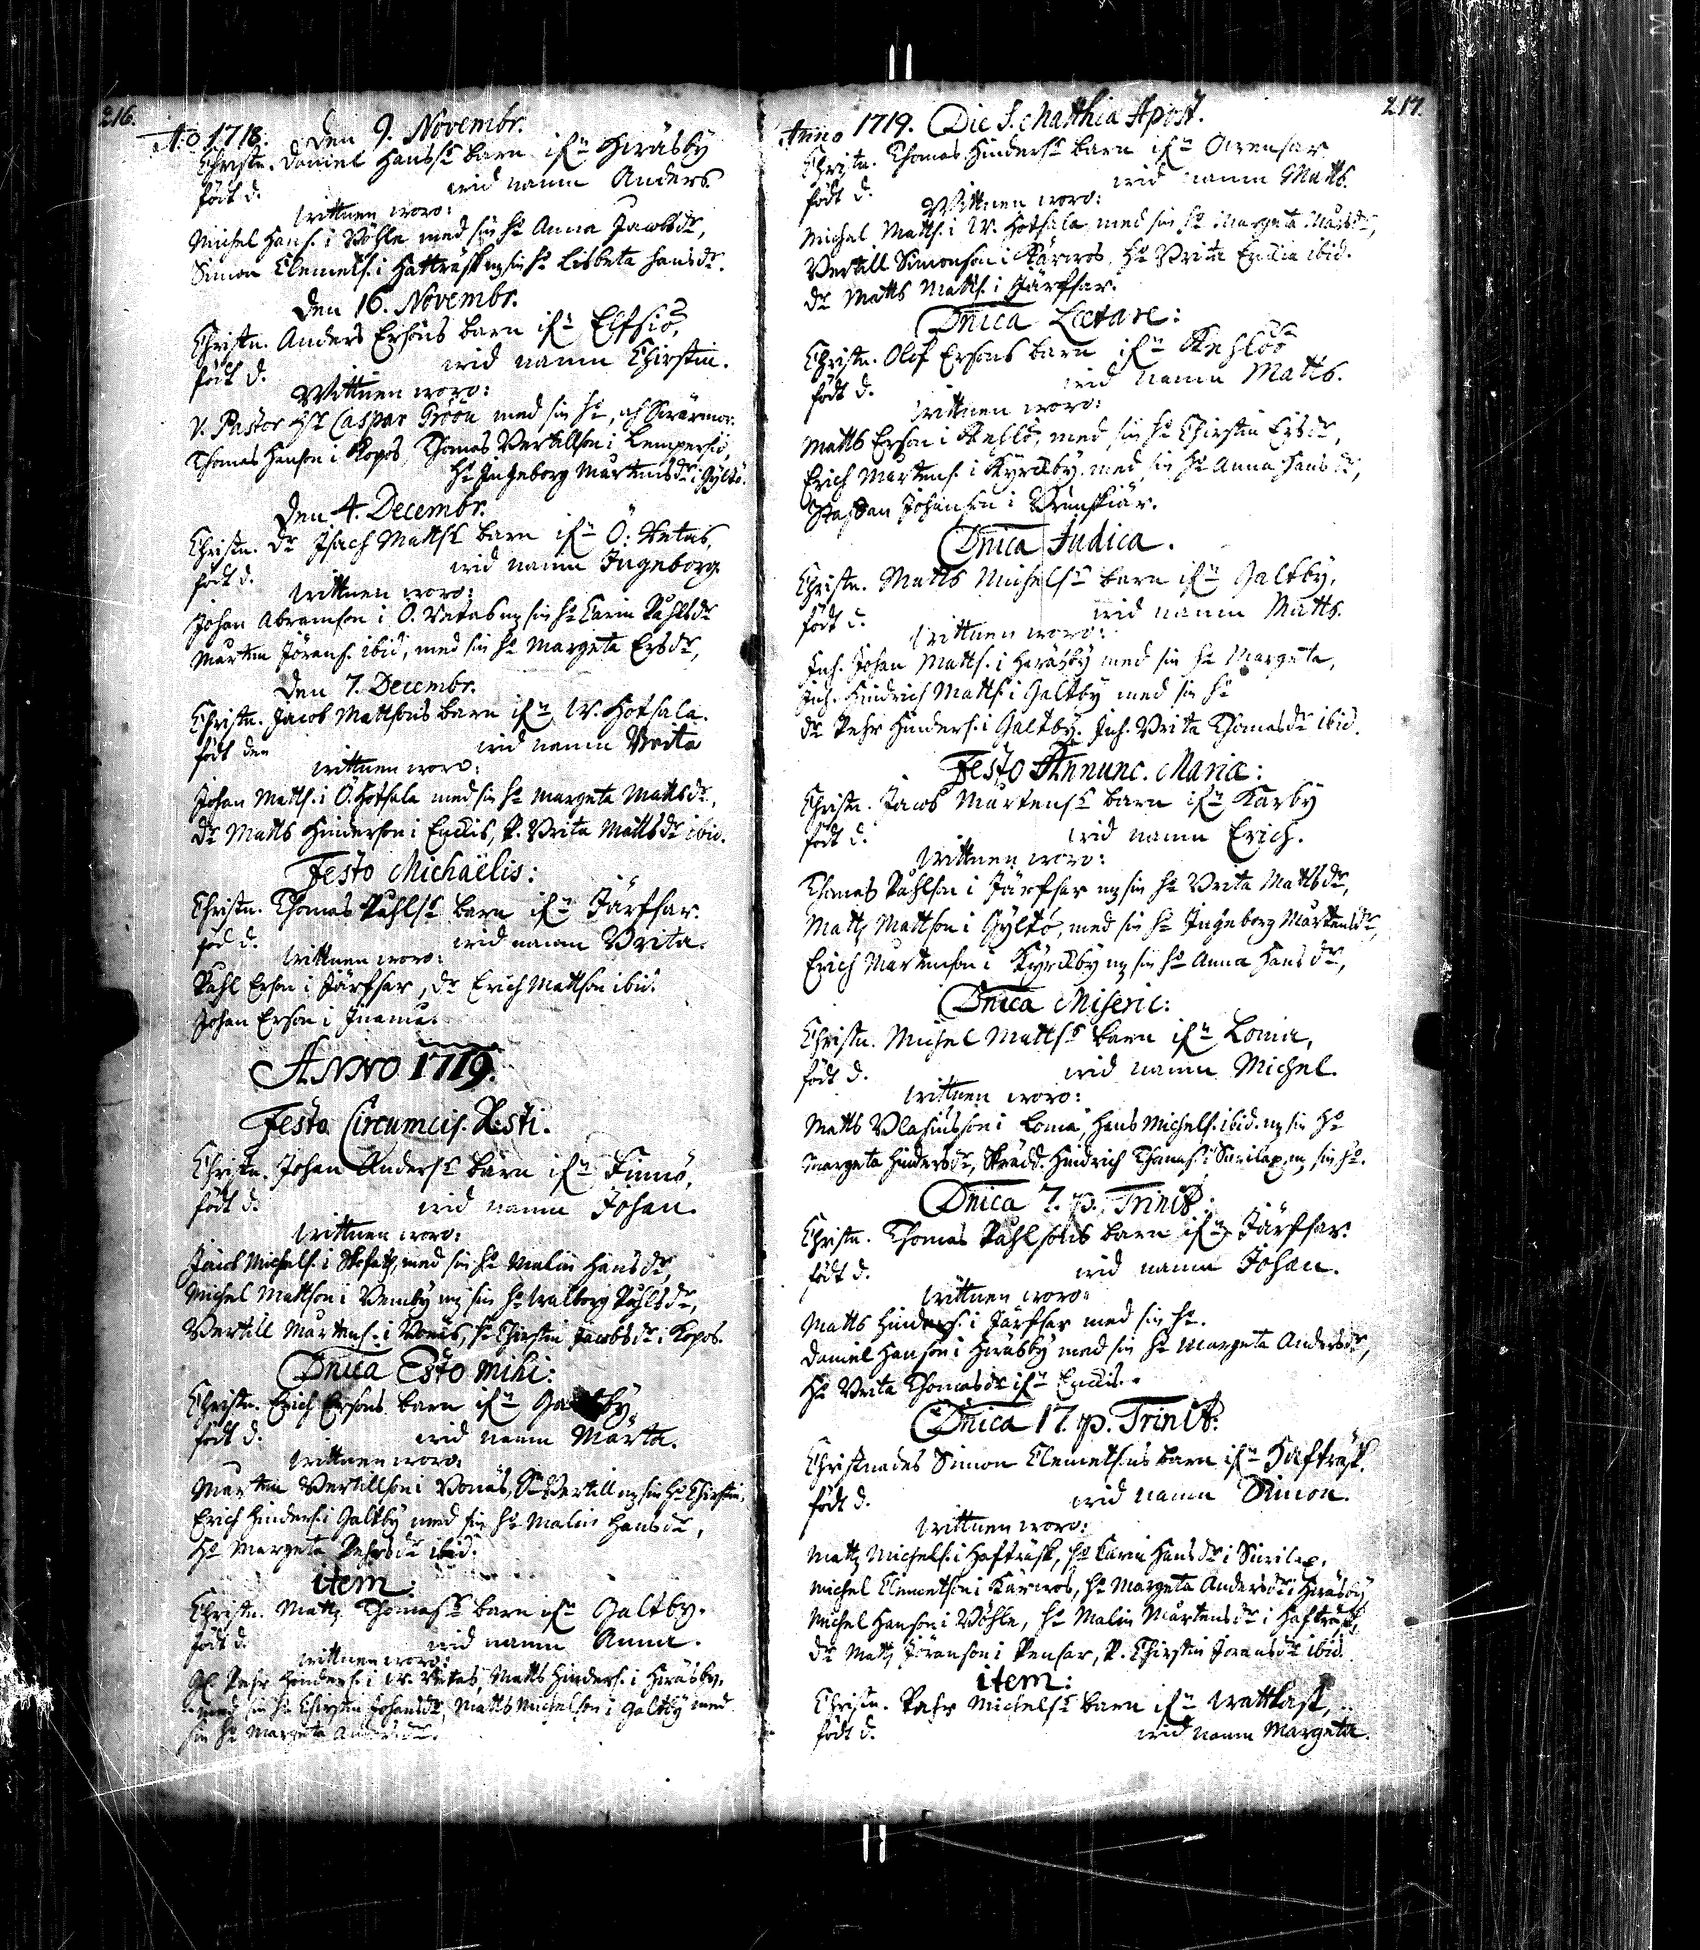 216.
A:o 1718. Den 9. Novembr.
Christn. Daniel Hanss barn ifn Heräsby
födt d. wid namn Anders.
Wittnen woro:
Michel Hans. i Böhle med sin ho Anna Jacobsdr,
Simon Clemets. i Hafträsk mz sin ho Lisbeta Hansdr.
Den 16. Novembr.
Christn. Anders Ersons barn ifn Elfsiö,
födt d. wid namn Chirstin.
Wittnen woro:
V. Pastor Hr Caspar Gröön med sin ho, och Swärmor.
Thomas Hanson i Kopos, Thomas Bertillson i Lempersiö,
Ho Ingeborg Mårtensdr i Gyltö.
Den 4. Decembr.
Christn. dr Isach Matts barn ifn Ö:
födt d. wid namn Ingeborg.
Wittnen woro:
Johan Abramson i Ö. mz sin ho Carin Påhlsdr
Mårten Jörans. ibid, med sin ho Margeta Ersdr,
Den 7. Decembr.
Christn. Jacob Mattsons barn ifn W. Hofsala.
födt den wid namn Brita
wittnen woro:
Johan Matts. i Ö. Hofsala med sin ho Margeta Mattsdr,
Dr Matts Hinderson i Enklis, P. Brita Mattsdr ibid.
Festo Michaëlis:
Christn. Thomas Påhls barn ifn Järfsar.
föd d. wid namn Brita.
Wittnen woro:
Påhl Erson i Järfsar, Dr Erich Mattson ibid.
Johan Erson i
ANNO 1719.
Festo Circumcis. Xsti.
Christn. Johan Anders barn ifn Finnö,
födt d. wid namn Johan.
Wittnen woro:
Jacob Michels. i med sin ho Malin Hansdr,
Michel Mattson i Benby mz sin ho Walborg Påhlsdr,
Bertill Mårtens. i Bonäs, ho Chirstin Jacobsdr i Kopos.
Dnica Esto mihi:
Christn. Erich Ersons barn ifn
födt d. wid namn Märta.
Wittnen woro:
Mårten Bertillson i Bonäs, Bertill mz sin ho Chirstin,
Erich Hinders. i Galtby med sin ho Malin Hansdr,
Ho Margeta Pehrsdr ibid.
item:
Christn. Matz Thomass barn ifn Galtby.
födt d. wid namn Anna.
wittnen woro:
Pehr Hinders. i W. Matts Hinders. i Heräsby,
med sin ho Chirstin Johansdr, Matts Michelson i Galtby med
sin ho Margeta Andersdr.
217.
Anno 1719. Die S. Matthia Apost.
Christn. Thomas Hinders barn ifn
födt d. wid namn Matts.
Wittnen woro:
Michel Matts. i W. Hofsala med sin ho Margeta
Bertill Simonson i Kärwos, ho Brita ibid.
dr Matts Matts. i Järfsar.
Dnica Lætare:
Christn. Olof Ersons barn ifn
födt d. wid namn Matts.
Wittnen woro:
Matts Erson i med sin ho Chirstin Ersdr,
Erich Mårtens. i Kyrckby med sin ho Anna Hansdr,
Staffan Johanson i Brunskiär.
Dnica Judica.
Christn. Matts Michels barn ifn Galtby,
födt d. wid namn Matts.
Wittnen woro:
Inh. Johan Matts. i Heräsby med sin ho Margeta,
Inh. Hindrich Matts. i Galtby med sin ho
dr Pehr Hinders. i Galtby. Inh. Brita Thomasdr ibid.
Festo Annunc. Maria:
Christn. Jacob Mårtens barn ifn Karby
födt d. wid namn Erich.
Wittnen woro:
Thomas Påhlson i Järfsar mz sin ho Brita Mattsdr,
Matz Mattson i Gyltö, med sin ho Ingeborg Mårtensdr,
Erich Mårtenson i Kyrckby mz sin ho Anna Hansdr,
Dnica Miseric:
Christn. Michel Matts barn ifn Lomia,
födt d. wid namn Michel.
wittnen woro:
Matts Blasiusson i Lomia, Hans Michels. ibid. mz sin ho
Margeta Hindersdr, Skrädd. Hindrich Thomas. i mz sin ho.
Dnica 7. p. Trinit:
Christn. Thomas Påhlsons barn ifn Järfsar.
födt d. wid namn Johan.
wittnen woro:
Matts Hinders. i Järfsar med sin ho.
Daniel Hanson i Heräsby med sin ho Margeta Andersdr,
Ho Brita Thomasdr ifn Enklis.
Dnica 17. p. Trinit:
Christnades Simon Clemetsons barn ifn Hafträsk.
födt d. wid namn Simon.
Wittnen woro:
Matz Michels. i Hafträsk, ho Carin Hansdr i
Michel Clemetson i Kärwos, ho Margeta Andersdr i Heräsby
Michel Hanson i Böhle, ho Malin Mårtensdr i Hafträsk,
Dr Matz Jöranson i Pensar, P. Chirstin Joransdr ibid.
item:
Christn. Pehr Michels barn ifn Wattkast,
födt d. wid namn Margeta.